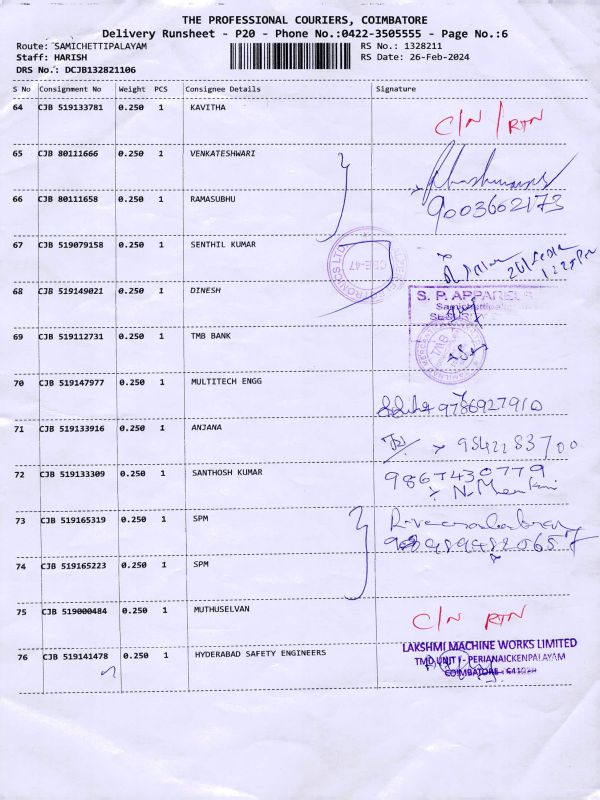 THE PROFESSIONAL COURIERS, COIMBATORE
Delivery Runsheet - P20 - Phone No.:0422-3505555 - Page No.:6
Route: SAMICHETTIPALAYAM RS No.: 1328211
Staff: HARISH RS Date: 26-Feb-2024
DRS No.: DCJB132821106
S No Consignment No Weight PCS Consignee Details Signature
64 CJB 519133781 0.250 1 KAVITHA C/N / RTN
65 CJB 80111666 0.250 1 VENKATESHWARI
66 CJB 80111658 0.250 1 RAMASUBHU 9003662173
67 CJB 519079158 0.250 1 SENTHIL KUMAR
68 CJB 519149021 0.250 1 DINESH S. P. APPARELS
Samichettipalayam
69 CJB 519112731 0.250 1 TMB BANK
70 CJB 519147977 0.250 1 MULTITECH ENGG 9786927910
71 CJB 519133916 0.250 1 ANJANA 9342283700
72 CJB 519133309 0.250 1 SANTHOSH KUMAR 9867430779
73 CJB 519165319 0.250 1 SPM
74 CJB 519165223 0.250 1 SPM
75 CJB 519000484 0.250 1 MUTHUSELVAN C/N RTN
76 CJB 519141478 0.250 1 HYDERABAD SAFETY ENGINEERS LAKSHMI MACHINE WORKS LIMITED
TMD UNIT I - PERIANAICKENPALAYAM
COIMBATORE - 641020